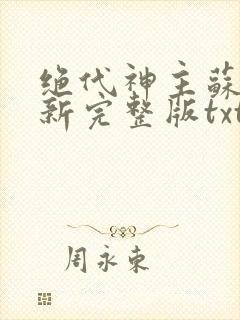 绝代神主蘇
新完整版txt
周永東